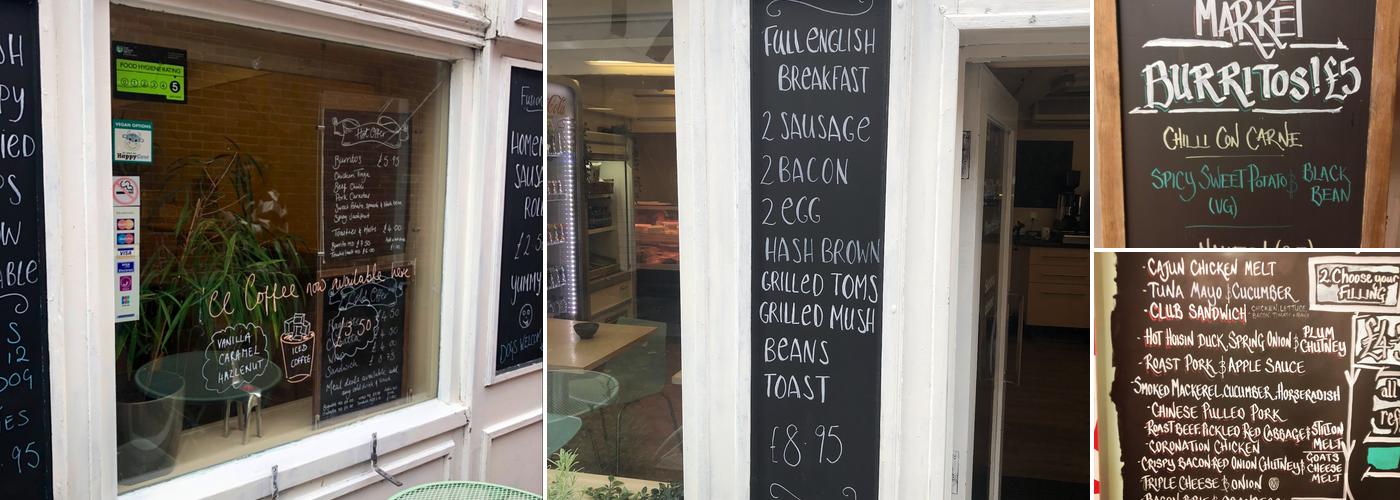 SH
PY
IED
PS
OW
ABLE
S
12
DOG
IES
8.95
FOOD HYGIENE RATING
0 1 2 3 4 5
VEGAN OPTIONS
HappyCow
VISA
VISA
Hot Offer
Burritos £5.95
Chicken Fajita
Beef Chilli
Pork Carnitas
Spicy Jackfruit
Toasties & Melts £4.00
Ice Coffee now available here
VANILLA
CARAMEL
HAZELNUT
ICED
COFFEE
£3.50
Sandwich
Meal deals available add
Fusion
HOMEM
SAUSA
ROLL
£2.5
YUMMY
DOGS WELCOM
FULL ENGLISH
BREAKFAST
2 SAUSAGE
2 BACON
2 EGG
HASH BROWN
GRILLED TOMS
GRILLED MUSH
BEANS
TOAST
£8.95
MARKET
BURRITOS! £5
CHILLI CON CARNE
SPICY SWEET POTATO & BLACK
BEAN
(VG)
- CAJUN CHICKEN MELT
- TUNA MAYO & CUCUMBER
- CLUB SANDWICH - CHICKEN, LETTUCE
BACON, TOMATO & MAYO
- HOT HOISIN DUCK, SPRING ONION & PLUM
CHUTNEY
- ROAST PORK & APPLE SAUCE
- SMOKED MACKEREL, CUCUMBER, HORSERADISH
- CHINESE PULLED PORK
- ROAST BEEF, PICKLED RED CABBAGE & STILTON
MELT
- CORONATION CHICKEN
- CRISPY BACON RED ONION CHUTNEY & GOATS
CHEESE
MELT
- TRIPLE CHEESE & ONION
2. Choose your
FILLING
£4
all
ref